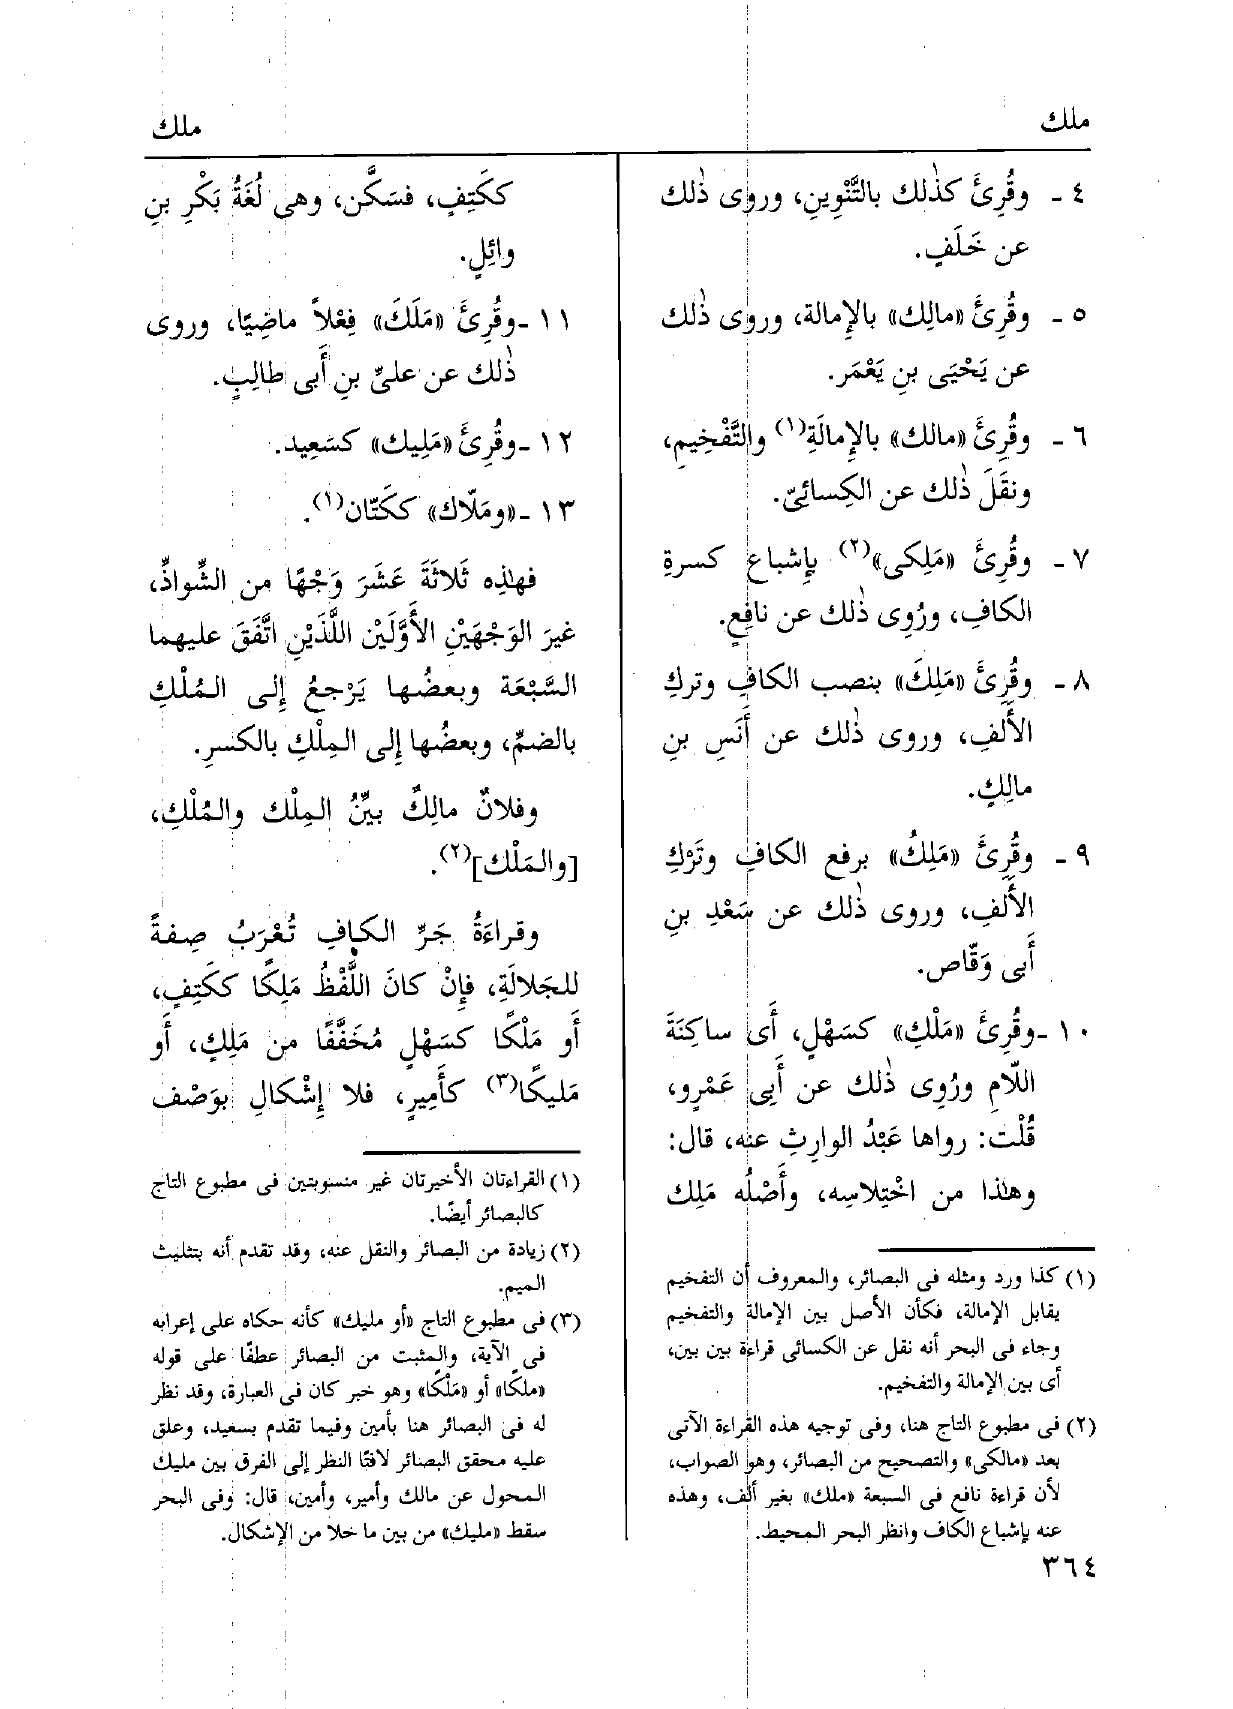 ملك
ملك
٤ - وقُرِئَ كذٰلك بالتَّنْوِينِ، وروى ذٰلك
عن خَلَفٍ.
٥ - وقُرِئَ «مالِك» بالإمالة، وروى ذٰلك
عن يَحْيَى بنِ يَعْمَر.
٦ - وقُرِئَ «مالك» بالإمالَةِ(١) والتَّفْخِيمِ،
ونقَلَ ذٰلك عن الكِسائِىّ.
٧ - وقُرِئَ «مَلِكى»(٢) بِإشباع كسرةِ
الكافِ، ورُوِى ذٰلك عن نافِعٍ.
٨ - وقُرِئَ «مَلِكَ» بنصب الكافِ وتركِ
الأَلفِ، وروى ذٰلك عن أَنَسِ بنِ
مالِكٍ.
٩ - وقُرِئَ «مَلِكُ» برفع الكافِ وتَرْكِ
الأَلفِ، وروى ذٰلك عن سَعْدِ بنِ
أَبى وَقّاص.
١٠ -وقُرِئَ «مَلْكِ» كسَهْلٍ، أَى ساكِنَةَ
اللّامِ ورُوِى ذٰلك عن أَبِى عَمْرٍو،
قُلْت: رواها عَبْدُ الوارِثِ عنه، قال:
وهٰذا من اخْتِلاسِه، وأَصْلُه مَلِك
(١) كذا ورد ومثله فى البصائر، والمعروف أن التفخيم
يقابل الإمالة، فكأن الأصل بين الإمالة والتفخيم
وجاء فى البحر أنه نقل عن الكسائى قراءة بين بين،
أى بين الإمالة والتفخيم.
(٢) فى مطبوع التاج هنا، وفى توجيه هذه القراءة الآتى
بعد «مالكى» والتصحيح من البصائر، وهو الصواب،
لأن قراءة نافع فى السبعة «ملك» بغير ألف، وهذه
عنه بإشباع الكاف وانظر البحر المحيط.
٣٦٤
ككَتِفٍ، فسَكَّن، وهى لُغَةُ بَكْرِ بنِ
وائِلٍ.
١١ -وقُرِئَ «مَلَكَ» فِعْلاً ماضِيًا، وروى
ذٰلك عن علىِّ بنِ أَبى طالِبٍ.
١٢ -وقُرِئَ «مَلِيك» كسَعِيد.
١٣ -«ومَلّاك» ككَتّان(١).
فهٰذِه ثَلاثَةَ عَشَرَ وَجْهًا من الشَّواذِّ،
غيرَ الوَجْهَيْنِ الأَوَّلَيْن اللَّذَيْنِ اتَّفَقَ عليهما
السَّبْعَة وبعضُها يَرْجعُ إلى المُلْكِ
بالضمِّ، وبعضُها إلى المِلْكِ بالكسرِ.
وفلانٌ مالِكٌ بيِّنُ المِلْك والمُلْكِ،
[والمَلْك](٢).
وقراءَةُ جَرِّ الكافِ تُعْرَبُ صِفةً
للجَلالَةِ، فإِنْ كانَ اللَّفْظُ مَلِكًا ككَتِفٍ،
أَو مَلْكًا كسَهْلٍ مُخَفَّفًا من مَلِكٍ، أَو
مَليكًا(٣) كأَمِيرٍ، فلا إِشْكالَ بوَصْف
(١) القراءتان الأخيرتان غير منسوبتين فى مطبوع التاج
كالبصائر أيضًا.
(٢) زيادة من البصائر والنقل عنه، وقد تقدم أنه بتثليث
الميم.
(٣) فى مطبوع التاج «أو مليك» كأنه حكاه على إعرابه
فى الآية، والمثبت من البصائر عطفًا على قوله
«ملكًا» أو «مَلْكًا» وهو خبر كان فى العبارة، وقد نظر
له فى البصائر هنا بأمين وفيما تقدم بسعيد، وعلق
عليه محقق البصائر لافتًا النظر إلى الفرق بين مليك
المحول عن مالك وأمير، وأمين، قال: وفى البحر
سقط «مليك» من بين ما خلا من الإشكال.